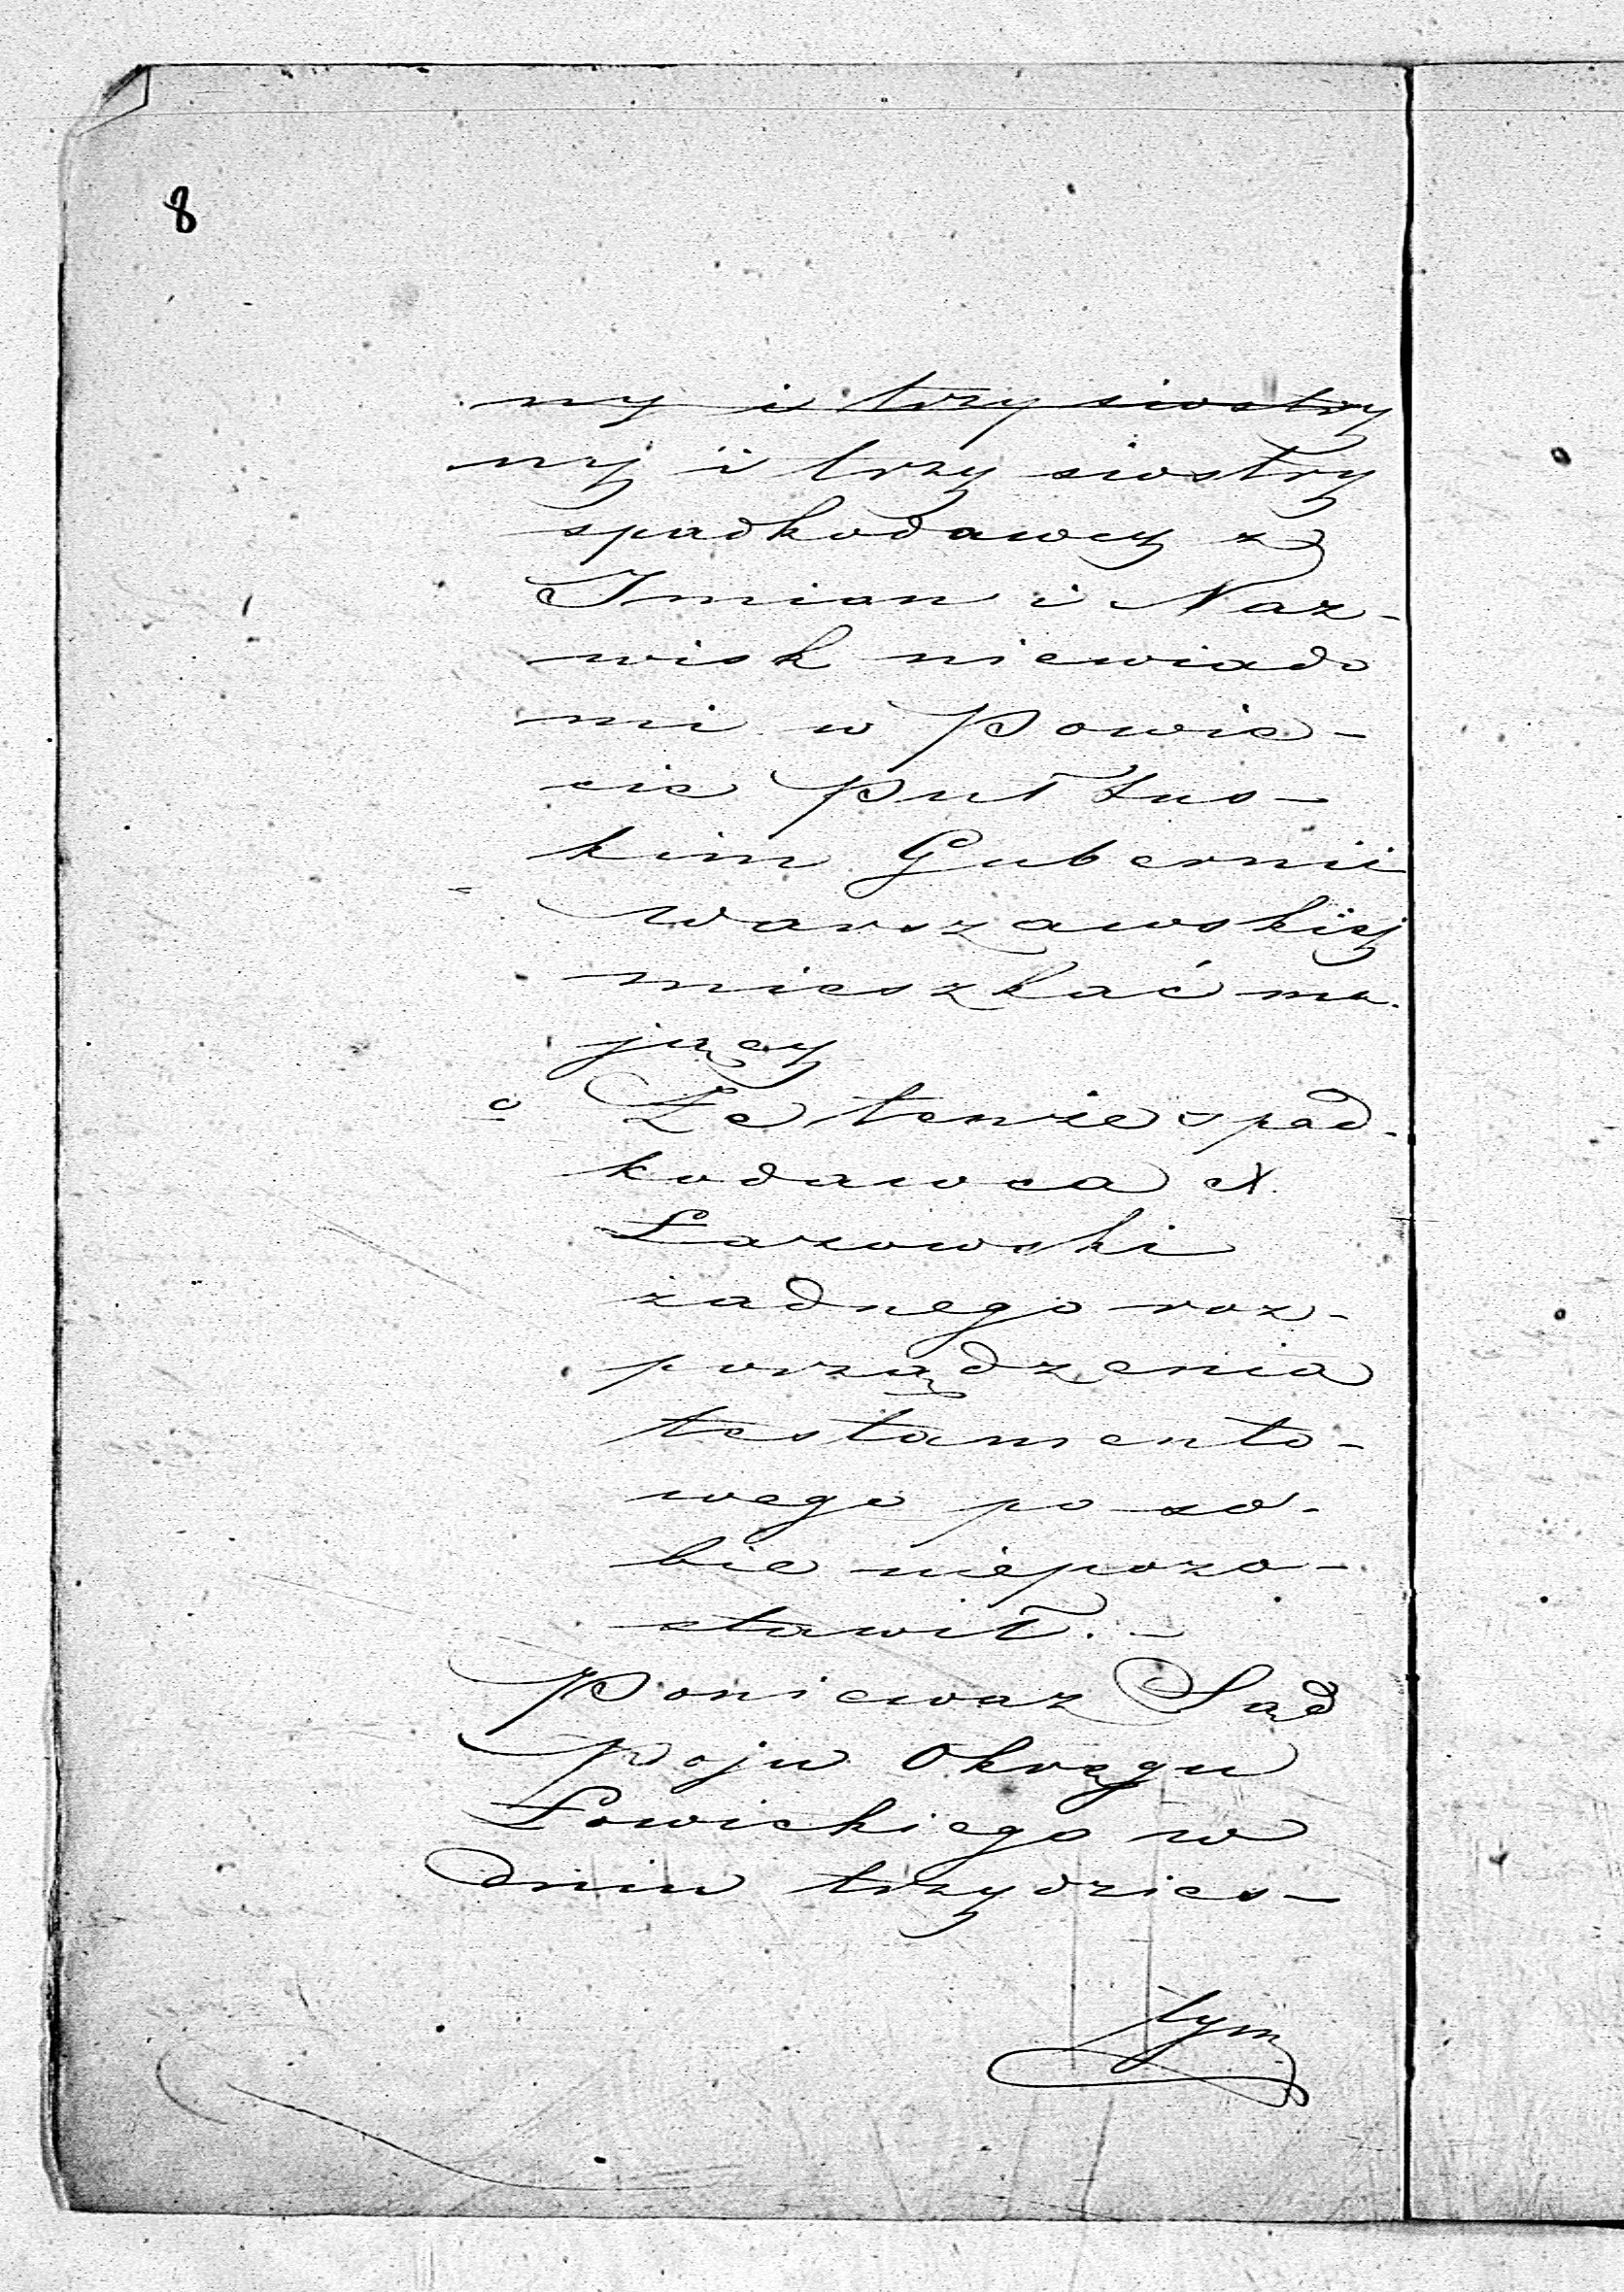 8
ny i trzy siostry
ny i trzy siostry
spadkodawcy z
Imion i Naz-
wisk niewiado
mi w Powie-
cie Pułtus-
kim Gubernii
Warszawskiéj
mieszkać ma-
jący
c Że tenże spad-
kodawca X.
Łazowski
żadnego roz-
porządzenia
testamento-
wego po so-
bie niepozo-
stawił. -
Ponieważ Sąd
Poju Okręgu
Łowickiego w
dniu trzydzies-
tym